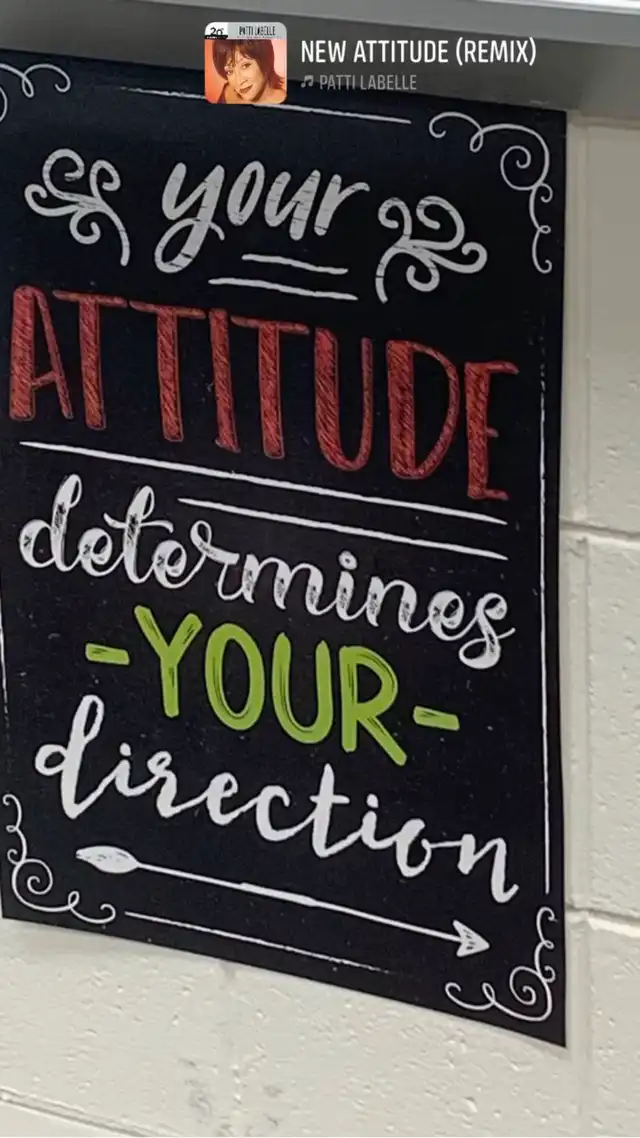 PATTI LABELLE
NEW ATTITUDE (REMIX)
PATTI LABELLE
your
ATTITUDE
determines
-YOUR-
direction